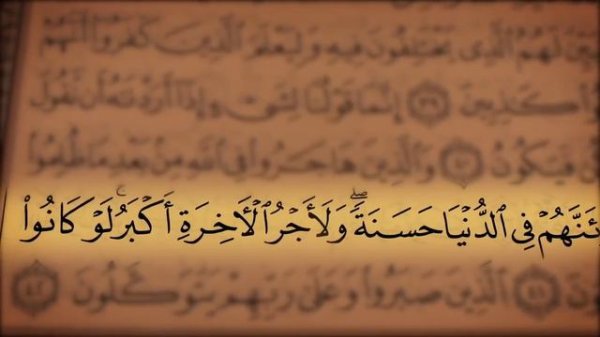 لَهُمُ ٱلَّذِى يَخْتَلِفُونَ فِيهِ وَلِيَعْلَمَ ٱلَّذِينَ كَفَرُوٓا۟ أَنَّهُمْ
كَـٰذِبِينَ ٣٩ إِنَّمَا قَوْلُنَا لِشَىْءٍ إِذَآ أَرَدْنَـٰهُ أَن نَّقُولَ
فَيَكُونُ ٤٠ وَٱلَّذِينَ هَاجَرُوا۟ فِى ٱللَّهِ مِنۢ بَعْدِ مَا ظُلِمُوا۟
ئَنَّهُمْ فِى ٱلدُّنْيَا حَسَنَةً ۖ وَلَأَجْرُ ٱلْأَخِرَةِ أَكْبَرُ ۚ لَوْ كَانُوا۟
ونَ ٤١ ٱلَّذِينَ صَبَرُوا۟ وَعَلَىٰ رَبِّهِمْ يَتَوَكَّلُونَ ٤٢